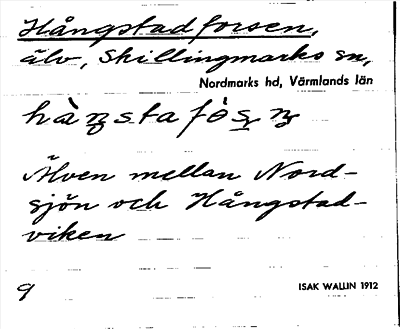 Hångstadforsen,
älv, Skillingmarks sn,
Nordmarks hd, Värmlands län
Älven mellan Nord-
sjön och Hångstad-
viken
9
ISAK WALLIN 1912